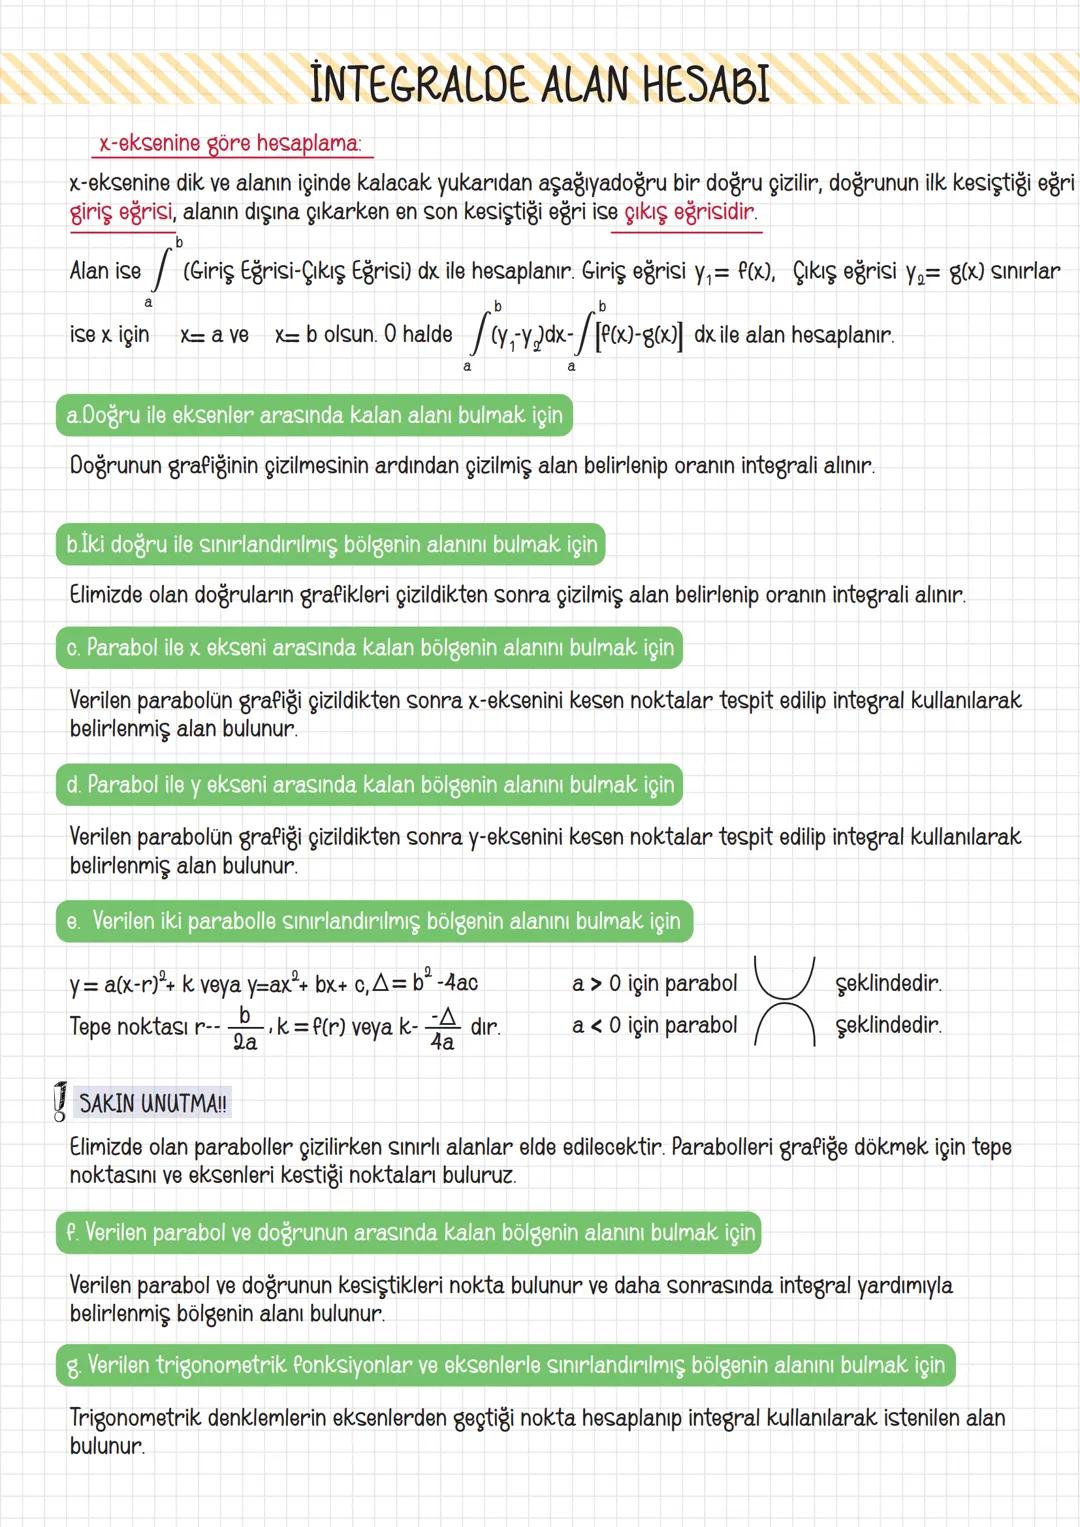 İNTEGRALDE ALAN HESABI
x-eksenine göre hesaplama:
x-eksenine dik ve alanın içinde kalacak yukarıdan aşağıyadoğru bir doğru çizilir, doğrunun ilk kesiştiği eğri
giriş eğrisi, alanın dışına çıkarken en son kesiştiği eğri ise çıkış eğrisidir.
Alan ise ∫ₐᵇ (Giriş Eğrisi-Çıkış Eğrisi) dx ile hesaplanır. Giriş eğrisi y₁= f(x), Çıkış eğrisi y₂= g(x) sınırlar
ise x için x= a ve x= b olsun. O halde ∫ₐᵇ (y₁-y₂)dx-∫ₐᵇ [f(x)-g(x)] dx ile alan hesaplanır.
a.Doğru ile eksenler arasında kalan alanı bulmak için
Doğrunun grafiğinin çizilmesinin ardından çizilmiş alan belirlenip oranın integrali alınır.
b.İki doğru ile sınırlandırılmış bölgenin alanını bulmak için
Elimizde olan doğruların grafikleri çizildikten sonra çizilmiş alan belirlenip oranın integrali alınır.
c. Parabol ile x ekseni arasında kalan bölgenin alanını bulmak için
Verilen parabolün grafiği çizildikten sonra x-eksenini kesen noktalar tespit edilip integral kullanılarak
belirlenmiş alan bulunur.
d. Parabol ile y ekseni arasında kalan bölgenin alanını bulmak için
Verilen parabolün grafiği çizildikten sonra y-eksenini kesen noktalar tespit edilip integral kullanılarak
belirlenmiş alan bulunur.
e. Verilen iki parabolle sınırlandırılmış bölgenin alanını bulmak için
y= a(x-r)²+ k veya y=ax²+ bx+ c, Δ= b²-4ac a > 0 için parabol şeklindedir.
Tepe noktası r-- b/2a , k = f(r) veya k- -Δ/4a dır. a < 0 için parabol şeklindedir.
! SAKIN UNUTMA!!
Elimizde olan paraboller çizilirken sınırlı alanlar elde edilecektir. Parabolleri grafiğe dökmek için tepe
noktasını ve eksenleri kestiği noktaları buluruz.
f. Verilen parabol ve doğrunun arasında kalan bölgenin alanını bulmak için
Verilen parabol ve doğrunun kesiştikleri nokta bulunur ve daha sonrasında integral yardımıyla
belirlenmiş bölgenin alanı bulunur.
g. Verilen trigonometrik fonksiyonlar ve eksenlerle sınırlandırılmış bölgenin alanını bulmak için
Trigonometrik denklemlerin eksenlerden geçtiği nokta hesaplanıp integral kullanılarak istenilen alan
bulunur.